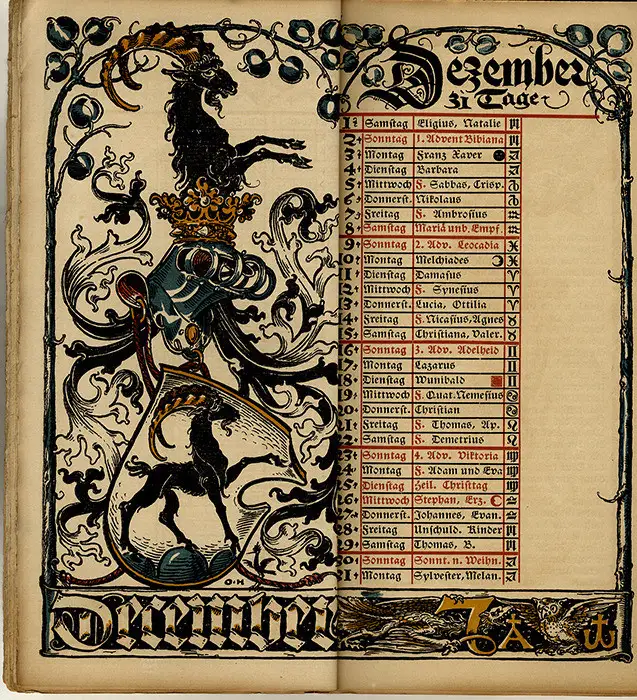 Dezember
31 Tage
1 Samstag Eligius, Natalie
2 Sonntag 1. Advent Bibiana
3 Montag Franz Xaver
4 Dienstag Barbara
5 Mittwoch F. Sabbas, Crisp.
6 Donnerst. Nikolaus
7 Freitag F. Ambrosius
8 Samstag Mariä unb. Empf.
9 Sonntag 2. Adv. Leocadia
10 Montag Melchiades
11 Dienstag Damasus
12 Mittwoch F. Synesius
13 Donnerst. Lucia, Ottilia
14 Freitag F. Nicasius, Agnes
15 Samstag Christiana, Valer.
16 Sonntag 3. Adv. Adelheid
17 Montag Lazarus
18 Dienstag Wunibald
19 Mittwoch F. Quat. Nemesius
20 Donnerst. Christian
21 Freitag F. Thomas, Ap.
22 Samstag F. Demetrius
23 Sonntag 4. Adv. Viktoria
24 Montag F. Adam und Eva
25 Dienstag Heil. Christtag
26 Mittwoch Stephan, Erz.
27 Donnerst. Johannes, Evan.
28 Freitag Unschuld. Kinder
29 Samstag Thomas, B.
30 Sonntag Sonnt. n. Weihn.
31 Montag Sylvester, Melan.
O·H
December